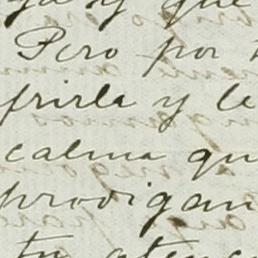 y que
Pero por
frirla y le
calma qu
prodigan
tu atenc